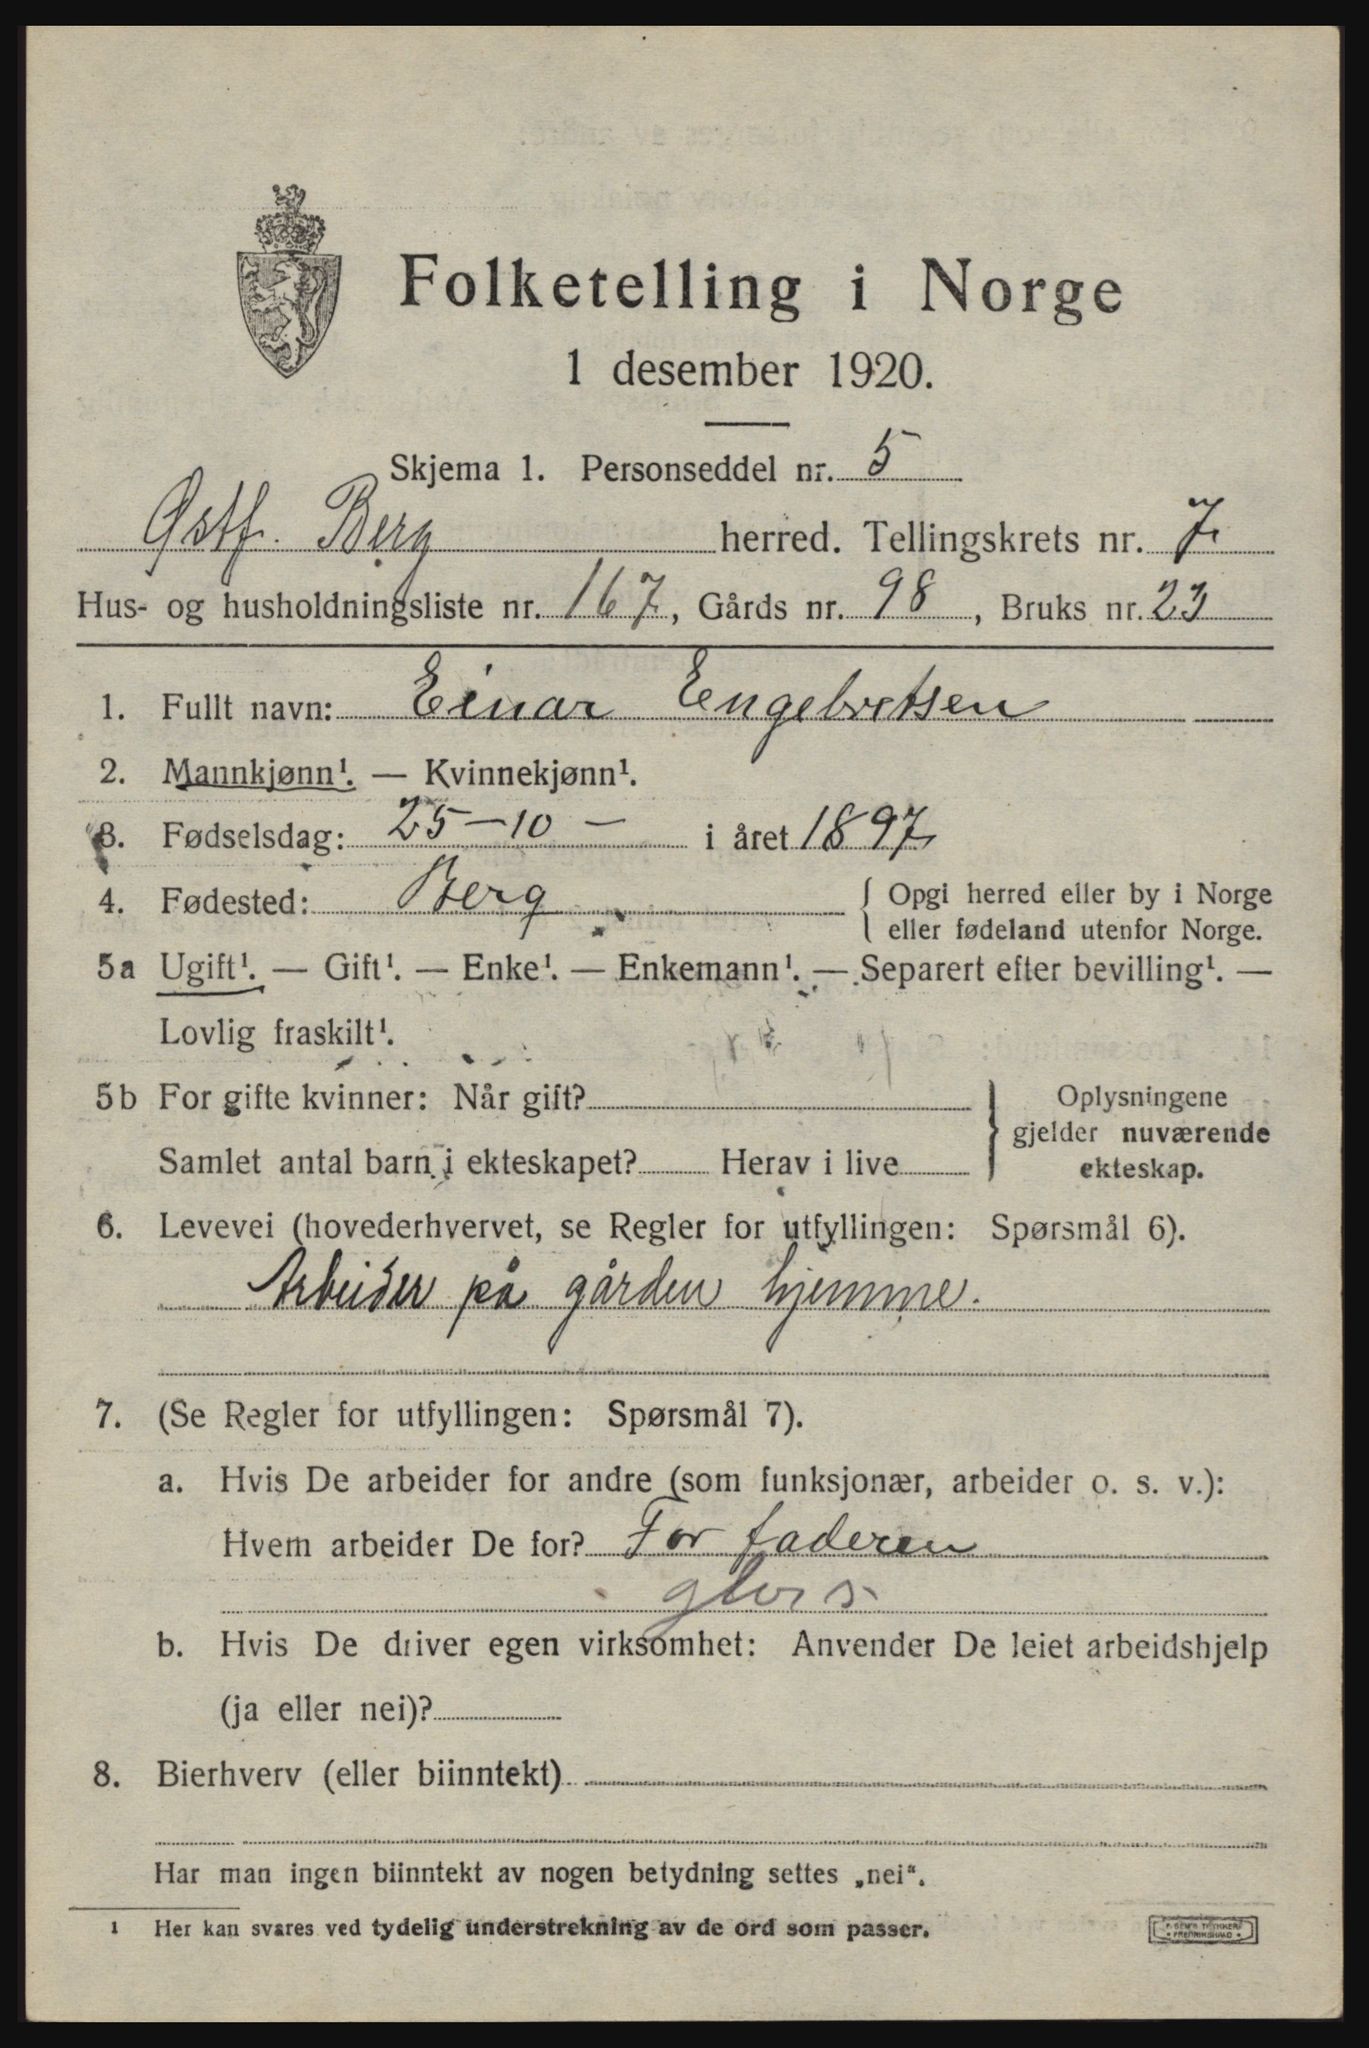 Folketelling i Norge
1 desember 1920.
Skjema 1. Personseddel nr. 5
Østf. Berg herred. Tellingskrets nr. 7
Hus- og husholdningsliste nr. 167, Gårds nr. 98, Bruks nr. 23
1. Fullt navn: Einar Engebretsen
2. Mannkjønn¹. — Kvinnekjønn¹.
3. Fødselsdag: 25-10- i året 1897
4. Fødested: Berg { Opgi herred eller by i Norge
eller fødeland utenfor Norge.
5a Ugift¹. — Gift¹. — Enke¹. — Enkemann¹. — Separert efter bevilling¹. —
Lovlig fraskilt¹.
5b For gifte kvinner: Når gift?
Samlet antal barn i ekteskapet? Herav i live
} Oplysningene
gjelder nuværende
ekteskap.
6. Levevei (hovederhvervet, se Regler for utfyllingen: Spørsmål 6).
Arbeider på gården hjemme.
7. (Se Regler for utfyllingen: Spørsmål 7).
a. Hvis De arbeider for andre (som funksjonær, arbeider o. s. v.):
Hvem arbeider De for? For faderen
b. Hvis De driver egen virksomhet: Anvender De leiet arbeidshjelp
(ja eller nei)?
8. Bierhverv (eller biinntekt)
Har man ingen biinntekt av nogen betydning settes „nei“.
¹ Her kan svares ved tydelig understrekning av de ord som passer.